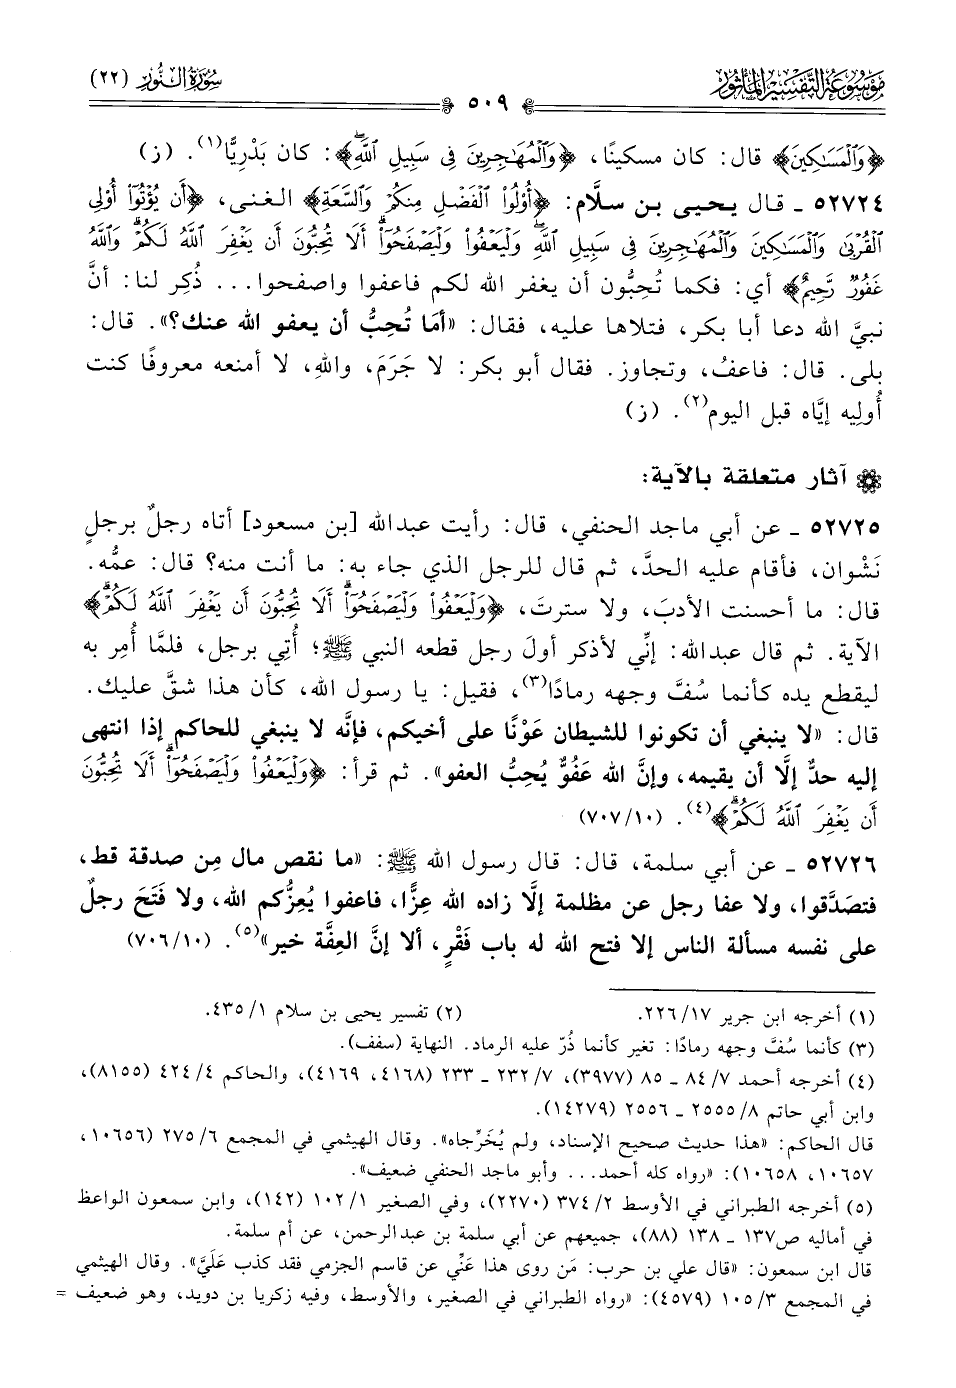 موسوعة التفسير المأثور
٥٠٩
سورة النور (٢٢)
﴿وَٱلْمَسَٰكِينَ﴾ قال: كان مسكينًا، ﴿وَٱلْمُهَٰجِرِينَ فِى سَبِيلِ ٱللَّهِ﴾: كان بَدْرِيًّا(١). (ز)
٥٢٧٢٤ ـ قال يحيى بن سلَّام: ﴿أُوْلُوا۟ ٱلْفَضْلِ مِنكُمْ وَٱلسَّعَةِ﴾ الغنى، ﴿أَن يُؤْتُوٓا۟ أُو۟لِى
ٱلْقُرْبَىٰ وَٱلْمَسَٰكِينَ وَٱلْمُهَٰجِرِينَ فِى سَبِيلِ ٱللَّهِۖ وَلْيَعْفُوا۟ وَلْيَصْفَحُوٓا۟ۗ أَلَا تُحِبُّونَ أَن يَغْفِرَ ٱللَّهُ لَكُمْۗ وَٱللَّهُ
غَفُورٌ رَّحِيمٌ﴾ أي: فكما تُحِبُّون أن يغفر الله لكم فاعفوا واصفحوا... ذُكِر لنا: أنَّ
نبيَّ الله دعا أبا بكر، فتلاها عليه، فقال: «أمَا تُحِبُّ أن يعفو الله عنك؟». قال:
بلى. قال: فاعفُ، وتجاوز. فقال أبو بكر: لا جَرَمَ، واللهِ، لا أمنعه معروفًا كنت
أُولِيه إيَّاه قبل اليوم(٢). (ز)
آثار متعلقة بالآية:
٥٢٧٢٥ ـ عن أبي ماجد الحنفي، قال: رأيت عبدالله [بن مسعود] أتاه رجلٌ برجلٍ
نَشْوان، فأقام عليه الحدَّ، ثم قال للرجل الذي جاء به: ما أنت منه؟ قال: عمُّه.
قال: ما أحسنت الأدبَ، ولا سترتَ، ﴿وَلْيَعْفُوا۟ وَلْيَصْفَحُوٓا۟ۗ أَلَا تُحِبُّونَ أَن يَغْفِرَ ٱللَّهُ لَكُمْۗ﴾
الآية. ثم قال عبدالله: إنِّي لأذكر أولَ رجل قطعه النبي ﷺ؛ أُتِي برجل، فلمَّا أُمِر به
ليقطع يده كأنما سُفَّ وجهه رمادًا(٣)، فقيل: يا رسول الله، كأن هذا شقَّ عليك.
قال: «لا ينبغي أن تكونوا للشيطان عَوْنًا على أخيكم، فإنَّه لا ينبغي للحاكم إذا انتهى
إليه حدٌّ إلَّا أن يقيمه، وإنَّ الله عَفُوٌّ يُحِبُّ العفو». ثم قرأ: ﴿وَلْيَعْفُوا۟ وَلْيَصْفَحُوٓا۟ۗ أَلَا تُحِبُّونَ
أَن يَغْفِرَ ٱللَّهُ لَكُمْۗ﴾(٤). (٧٠٧/١٠)
٥٢٧٢٦ ـ عن أبي سلمة، قال: قال رسول الله ﷺ: «ما نقص مال مِن صدقة قط،
فتصَدَّقوا، ولا عفا رجل عن مظلمة إلَّا زاده الله عِزًّا، فاعفوا يُعِزُّكم الله، ولا فَتَحَ رجلٌ
على نفسه مسألة الناس إلا فتح الله له باب فَقْرٍ، ألا إنَّ العِفَّة خير»(٥). (٧٠٦/١٠)
(١) أخرجه ابن جرير ٢٢٦/١٧. (٢) تفسير يحيى بن سلام ٤٣٥/١.
(٣) كأنما سُفَّ وجهه رمادًا: تغير كأنما ذُرّ عليه الرماد. النهاية (سفف).
(٤) أخرجه أحمد ٨٤/٧ ـ ٨٥ (٣٩٧٧)، ٢٣٢/٧ ـ ٢٣٣ (٤١٦٨، ٤١٦٩)، والحاكم ٤٢٤/٤ (٨١٥٥)،
وابن أبي حاتم ٢٥٥٥/٨ ـ ٢٥٥٦ (١٤٢٧٩).
قال الحاكم: «هذا حديث صحيح الإسناد، ولم يُخَرِّجاه». وقال الهيثمي في المجمع ٢٧٥/٦ (١٠٦٥٦،
١٠٦٥٧، ١٠٦٥٨): «رواه كله أحمد... وأبو ماجد الحنفي ضعيف».
(٥) أخرجه الطبراني في الأوسط ٣٧٤/٢ (٢٢٧٠)، وفي الصغير ١٠٢/١ (١٤٢)، وابن سمعون الواعظ
في أماليه ص١٣٧ ـ ١٣٨ (٨٨)، جميعهم عن أبي سلمة بن عبدالرحمن، عن أم سلمة.
قال ابن سمعون: «قال علي بن حرب: مَن روى هذا عَنِّي عن قاسم الجزمي فقد كذب عَلَيَّ». وقال الهيثمي
في المجمع ١٠٥/٣ (٤٥٧٩): «رواه الطبراني في الصغير، والأوسط، وفيه زكريا بن دويد، وهو ضعيف =